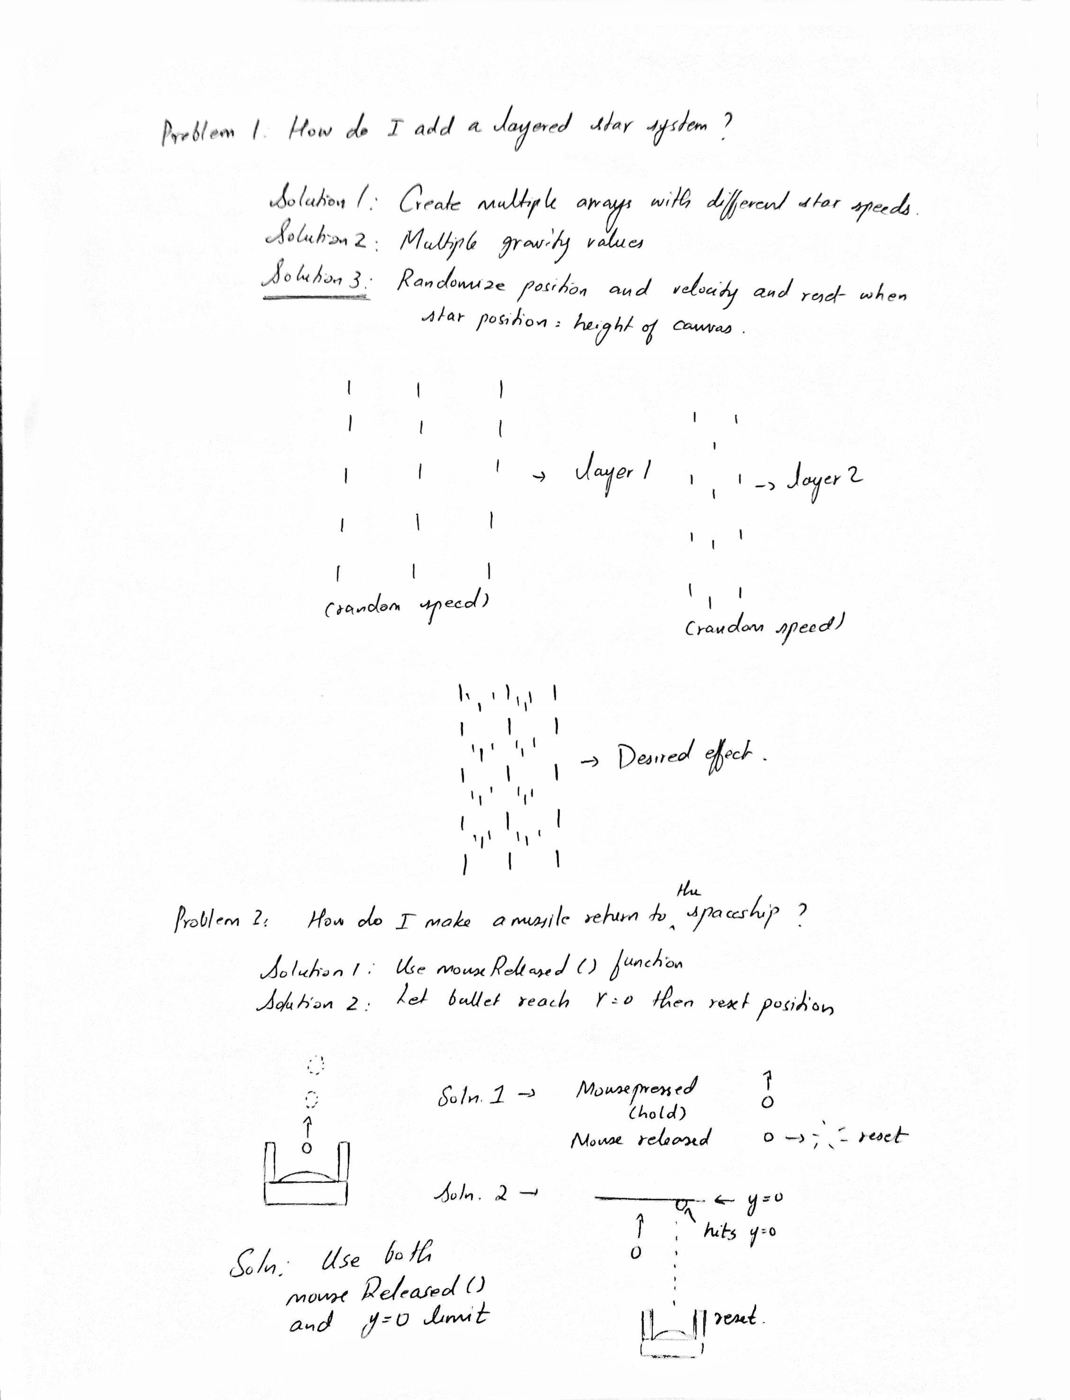 Problem 1. How do I add a layered star system ?
Solution 1: Create multiple arrays with different star speeds.
Solution 2: Multiple gravity values
Solution 3: Randomize position and velocity and reset when
star position = height of canvas.
→ layer 1
→ layer 2
(random speed)
(random speed)
→ Desired effect.
Problem 2: How do I make a missile return to the spaceship ?
Solution 1: Use mouseReleased () function
Solution 2: Let bullet reach Y=0 then reset position
Soln. 1 → Mousepressed
(hold)
Mouse released → reset
Soln. 2 → ← y=0
hits y=0
Soln: Use both
mouse Released ()
and y=0 limit
reset.